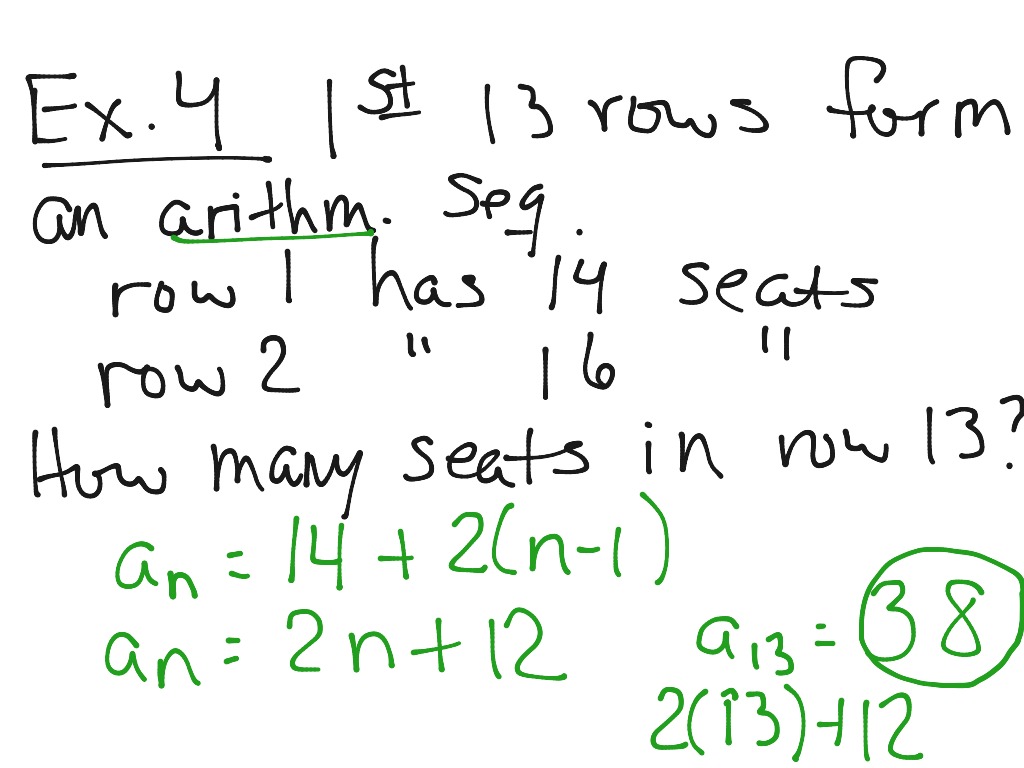 Ex. 4 1st 13 rows form
an arithm. seq.
row 1 has 14 seats
row 2 " 16 "
How many seats in row 13?
an = 14 + 2(n-1)
an = 2n + 12
a13 = 38
2(13)+12